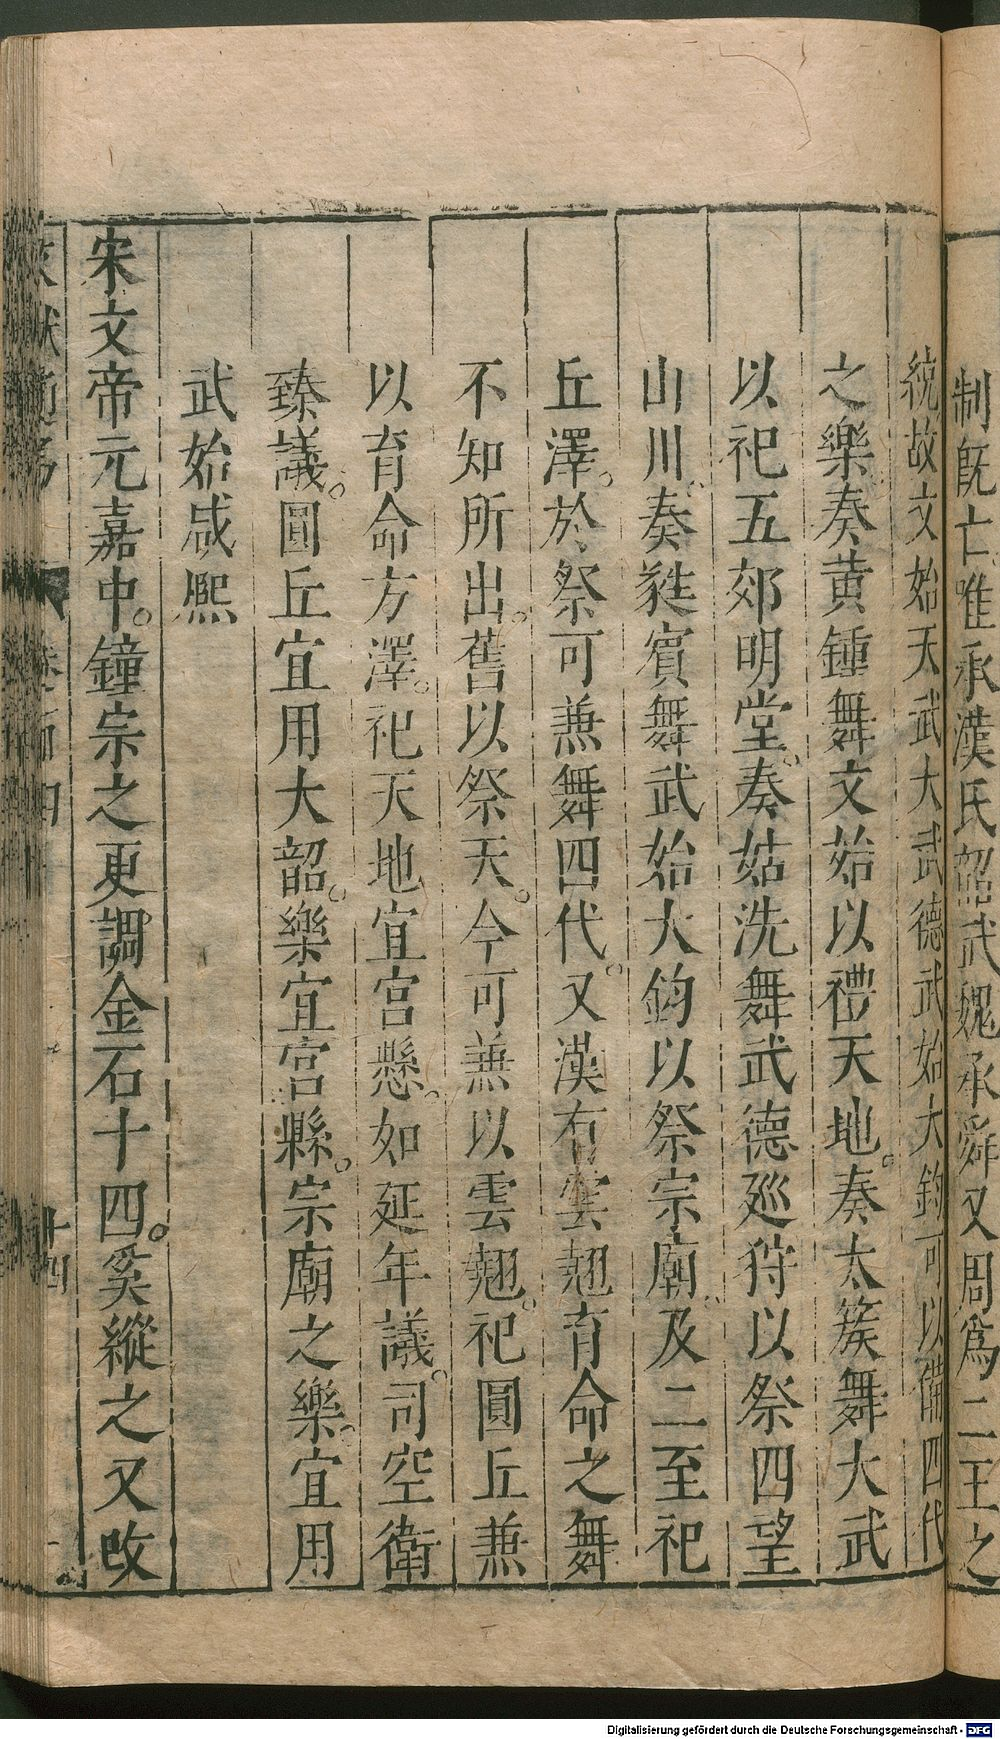 制既亡唯承漢氏韶武魏承舜又周爲二王之
統故文始天武大武武德武始大鈞可以備四代
之樂奏黄鍾舞文始以禮天地奏太簇舞大武
以祀五郊明堂奏姑洗舞武德廵狩以祭四望
山川奏蕤賓舞武始大鈞以祭宗廟及二至祀
丘澤於祭可兼舞四代又漢有雲翹育命之舞
不知所出舊以祭天今可兼以雲翹祀圓丘兼
以育命方澤祀天地宜宮懸如延年議司空衛
臻議圓丘宜用大韶樂宜宮縣宗廟之樂宜用
武始咸熈
宋文帝元嘉中鐘宗之更調金石十四奚縱之又改
卷百四十
十四
Digitalisierung gefördert durch die Deutsche Forschungsgemeinschaft - DFG